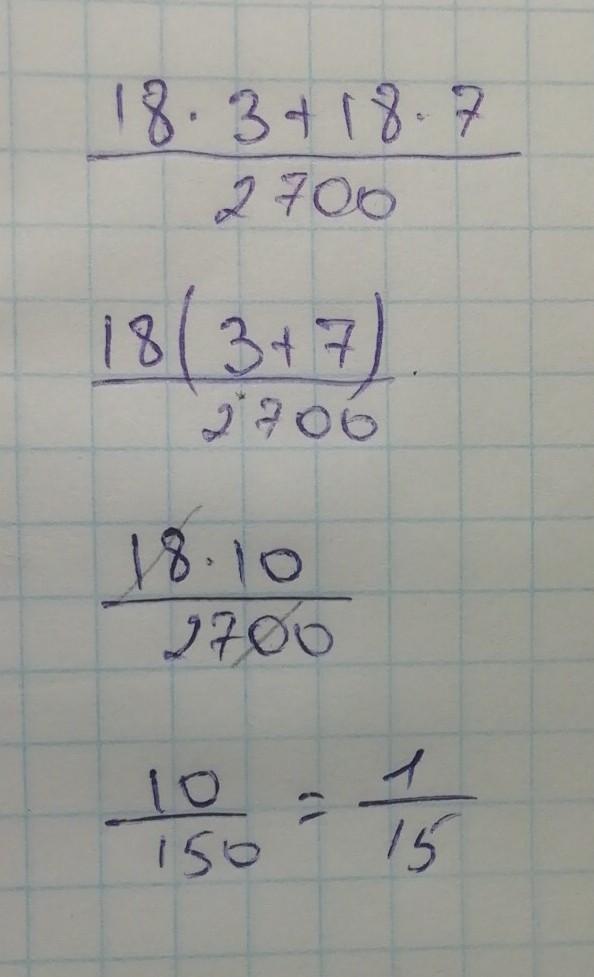 18 · 3 + 18 · 7
2700
18(3 + 7)
2700
18 · 10
2700
10 = 1
150 15